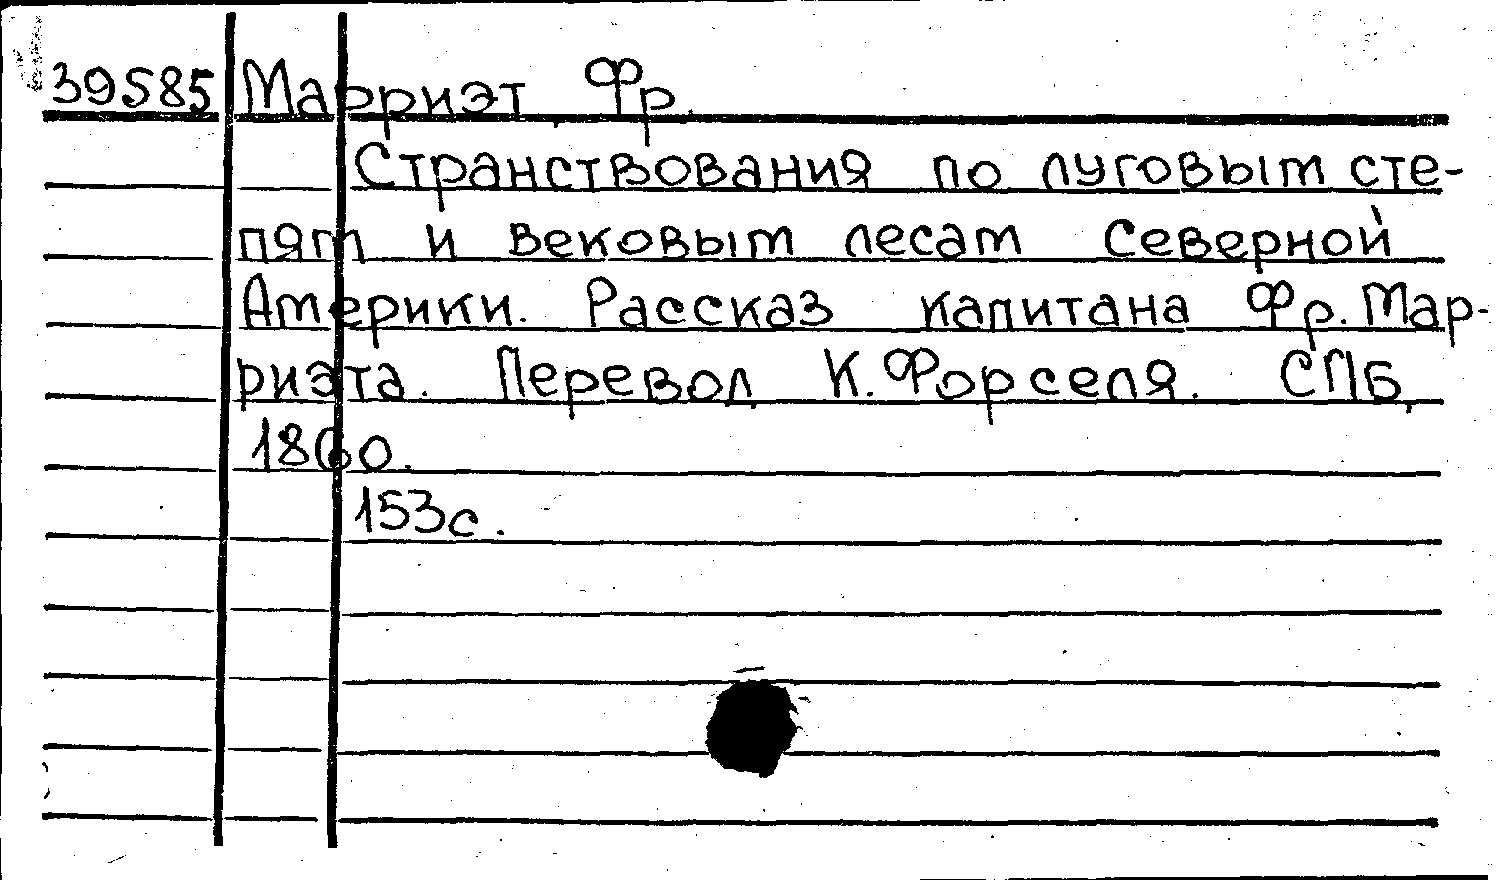 39585 Марриэт, Фр.
Странствования по луговым сте-
пям и вековым лесам Северной
Америки. Рассказ капитана Фр. Мар-
риэта. Перевод К. Форселя. СПБ,
1860.
153с.